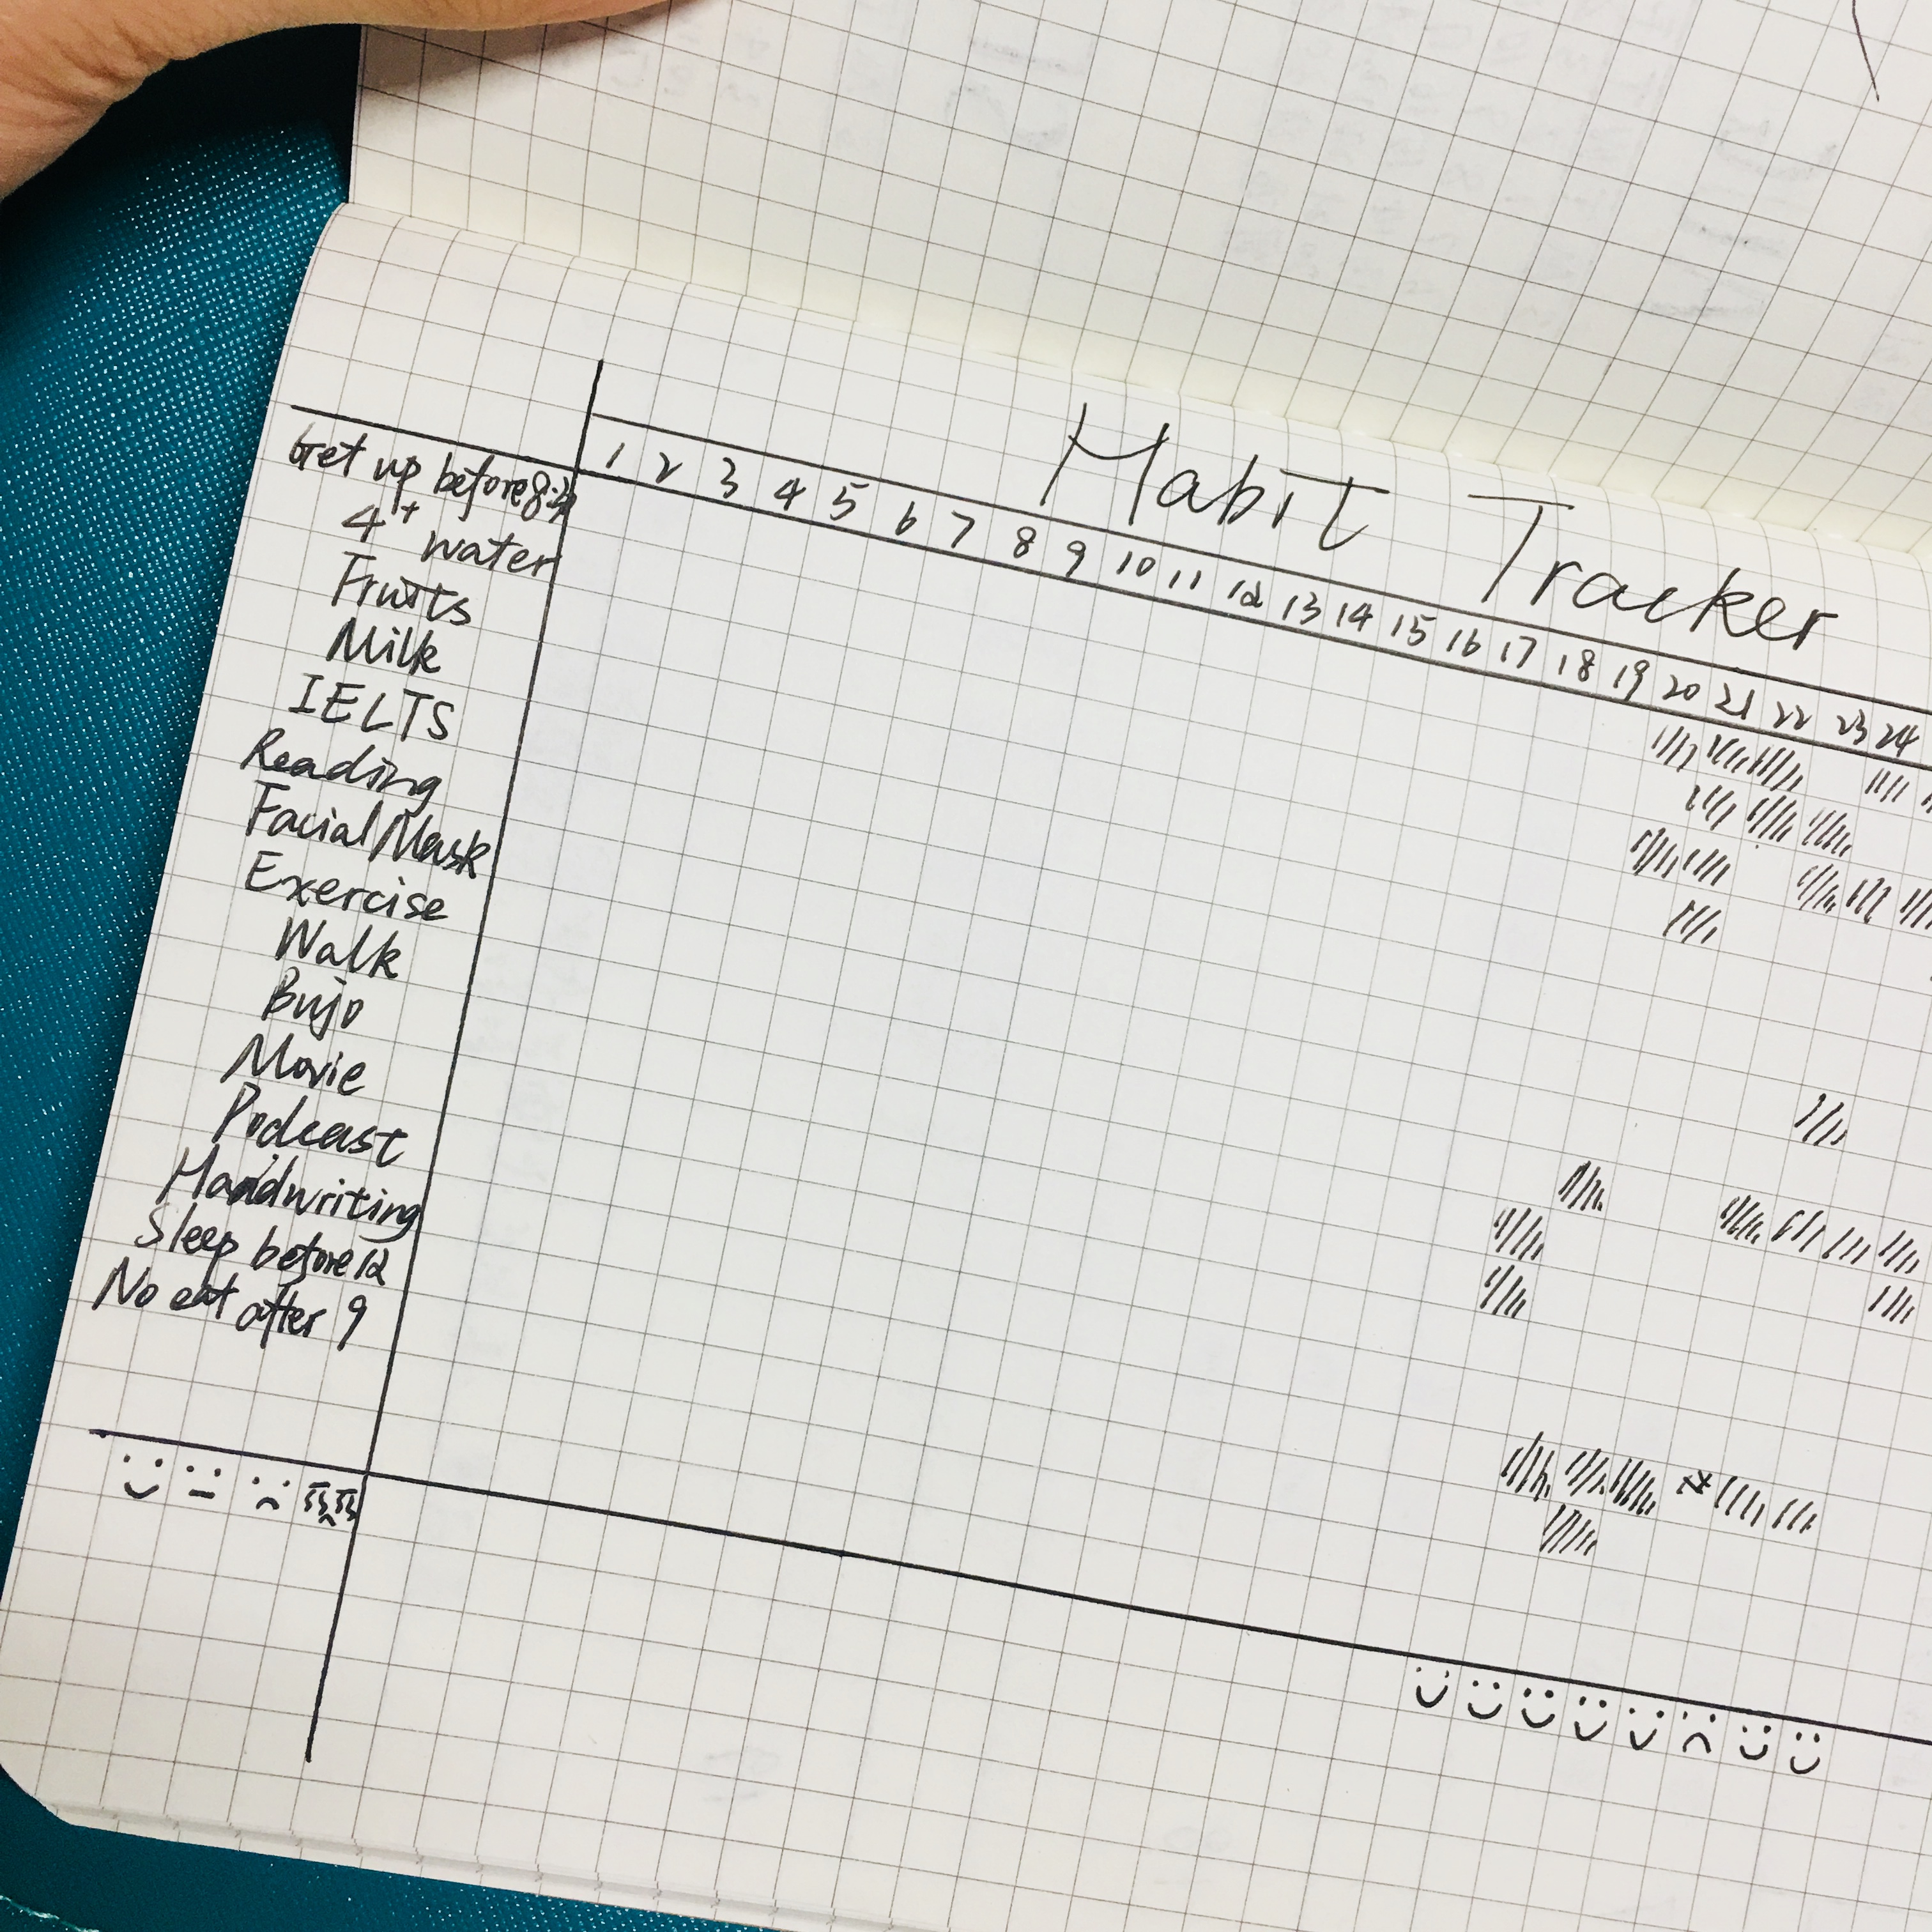 Habit Tracker
1 2 3 4 5 6 7 8 9 10 11 12 13 14 15 16 17 18 19 20 21 22 23 24
Get up before 8:30
4+ water
Fruits
Milk
IELTS
Reading
Facial Mask
Exercise
Walk
Bujo
Movie
Podcast
Handwriting
Sleep before 12
No eat after 9